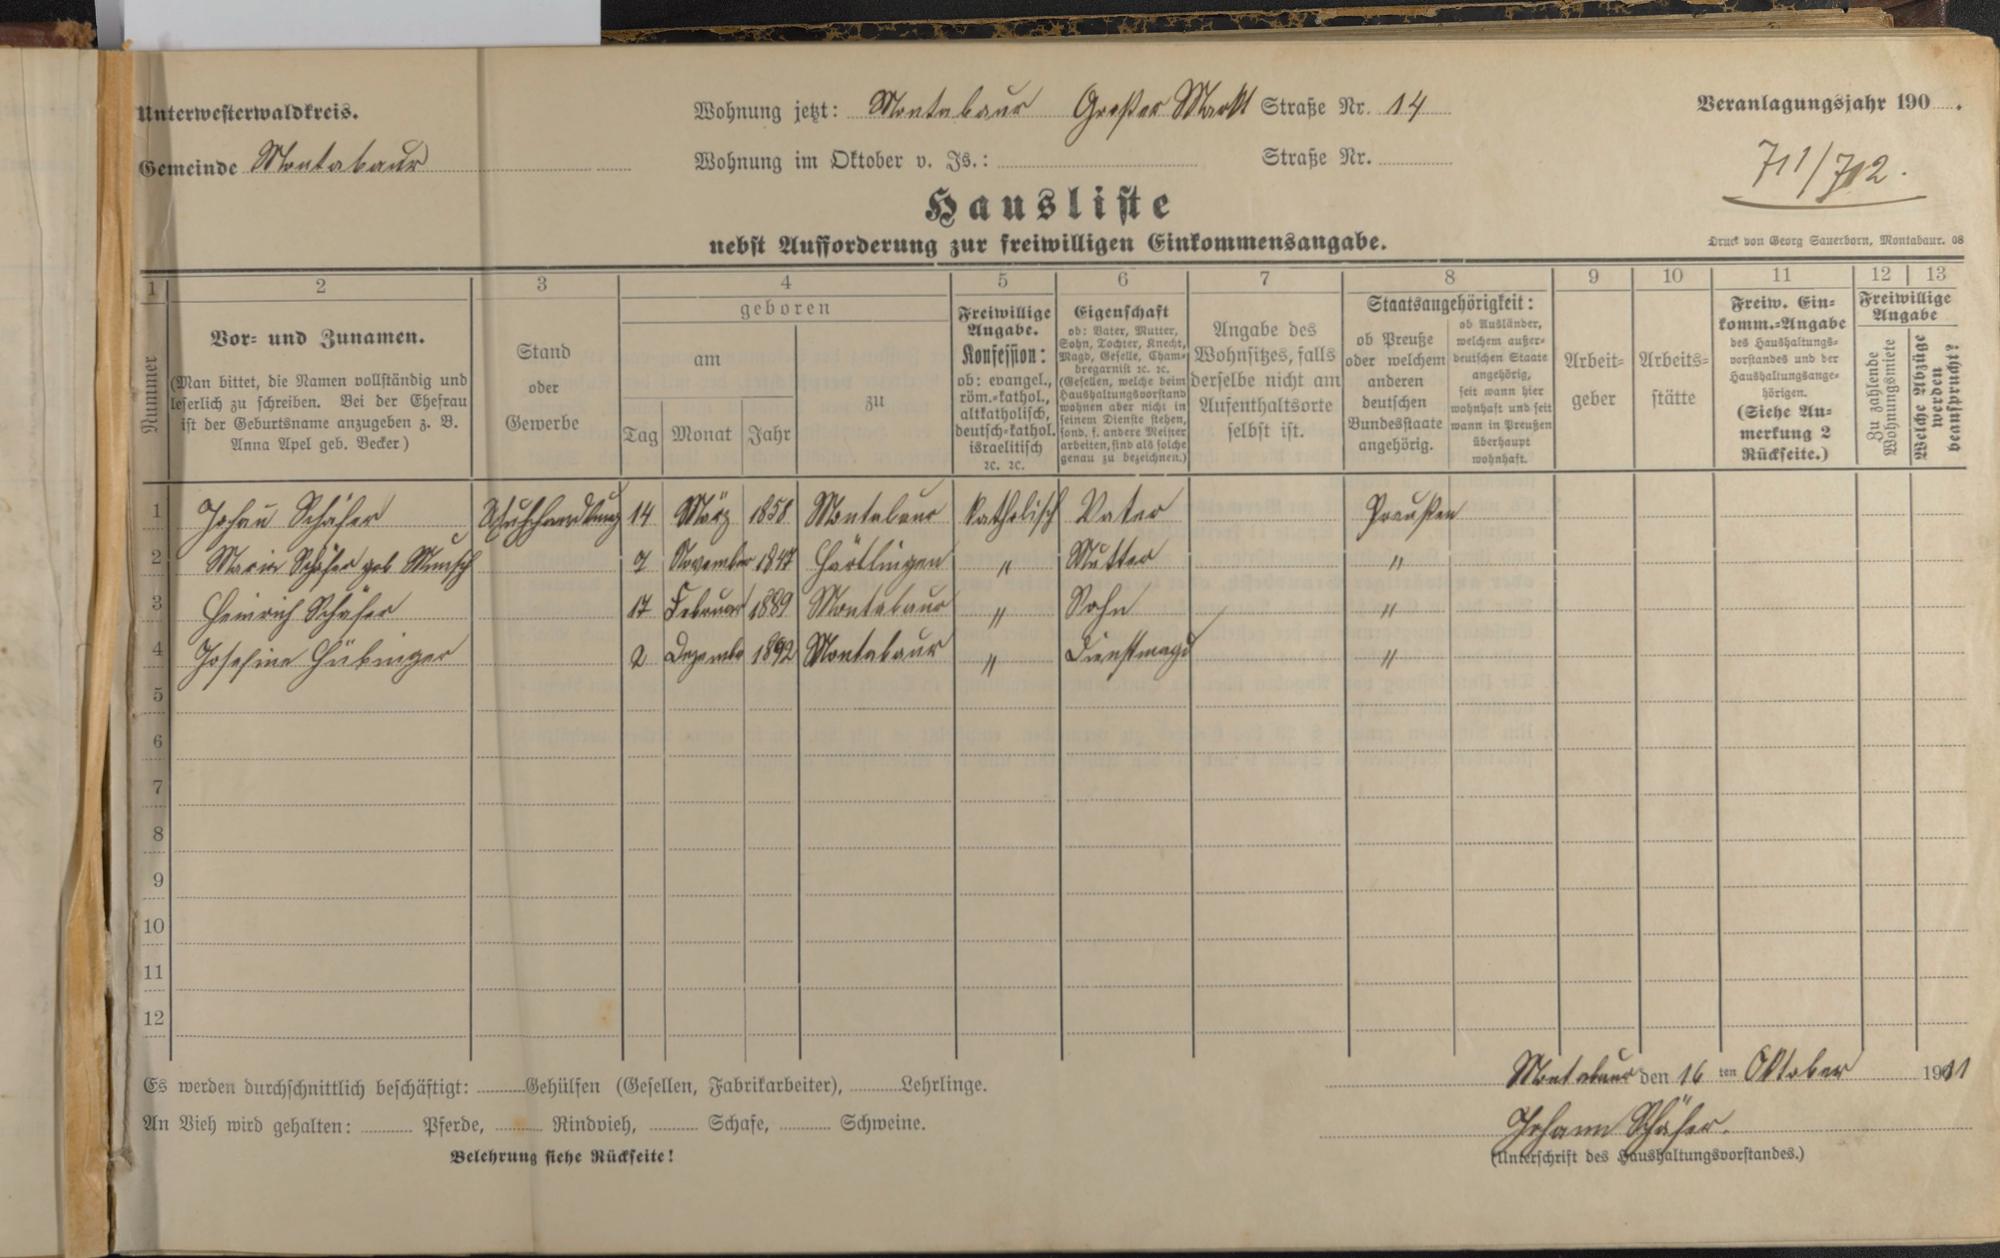 Unterwesterwaldkreis.
Gemeinde Montabaur
Wohnung jetzt: Montabaur Großer Markt Straße Nr. 14
Wohnung im Oktober v. Js.: Straße Nr.
Veranlagungsjahr 190 .
711/702.
Hausliste
nebst Aufforderung zur freiwilligen Einkommensangabe.
Druck von Georg Sauerborn, Montabaur. 08
1 2 3 4 5 6 7 8 9 10 11 12 13
Nummer
Vor- und Zunamen.
(Man bittet, die Namen vollständig und
leserlich zu schreiben. Bei der Ehefrau
ist der Geburtsname anzugeben z. B.
Anna Apel geb. Becker)
Stand
oder
Gewerbe
geboren
am
Tag Monat Jahr
zu
Freiwillige
Angabe.
Konfession:
ob: evangel.,
röm.-kathol.,
altkatholisch,
deutsch-kathol.
israelitisch
ꝛc. ꝛc.
Eigenschaft
ob: Vater, Mutter,
Sohn, Tochter, Knecht,
Magd, Geselle, Cham-
bregarnist ꝛc. ꝛc.
(Gesellen, welche beim
Haushaltungsvorstand
wohnen aber nicht in
seinem Dienste stehen,
sond. f. andere Meister
arbeiten, sind als solche
genau zu bezeichnen.)
Angabe des
Wohnsitzes, falls
derselbe nicht am
Aufenthaltsorte
selbst ist.
Staatsangehörigkeit:
ob Preuße
oder welchem
anderen
deutschen
Bundesstaate
angehörig.
ob Ausländer,
welchem außer-
deutschen Staate
angehörig,
seit wann hier
wohnhaft und seit
wann in Preußen
überhaupt
wohnhaft.
Arbeit-
geber
Arbeits-
stätte
Freiw. Ein-
komm.-Angabe
des Haushaltungs-
vorstandes und der
Haushaltungsange-
hörigen.
(Siehe An-
merkung 2
Rückseite.)
Freiwillige
Angabe
Zu zahlende
Wohnungsmiete
Welche Abzüge
werden
beansprucht?
1 Johan Schäfer Schuhhandlung 14 März 1858 Montabaur katholisch Vater Preußen
2 Maria Schäfer geb Münsch 7 November 1847 Härtlingen " Mutter "
3 Heinrich Schäfer 17 Februar 1889 Montabaur " Sohn "
4 Josefine Hübinger 2 Dezember 1892 Montabaur " Dienstmagd "
5
6
7
8
9
10
11
12
Es werden durchschnittlich beschäftigt: Gehülfen (Gesellen, Fabrikarbeiter), Lehrlinge.
An Vieh wird gehalten: Pferde, Rindvieh, Schafe, Schweine.
Belehrung siehe Rückseite!
Montabaur den 16 ten Oktober 1911
Johann Schäfer.
(Unterschrift des Haushaltungsvorstandes.)